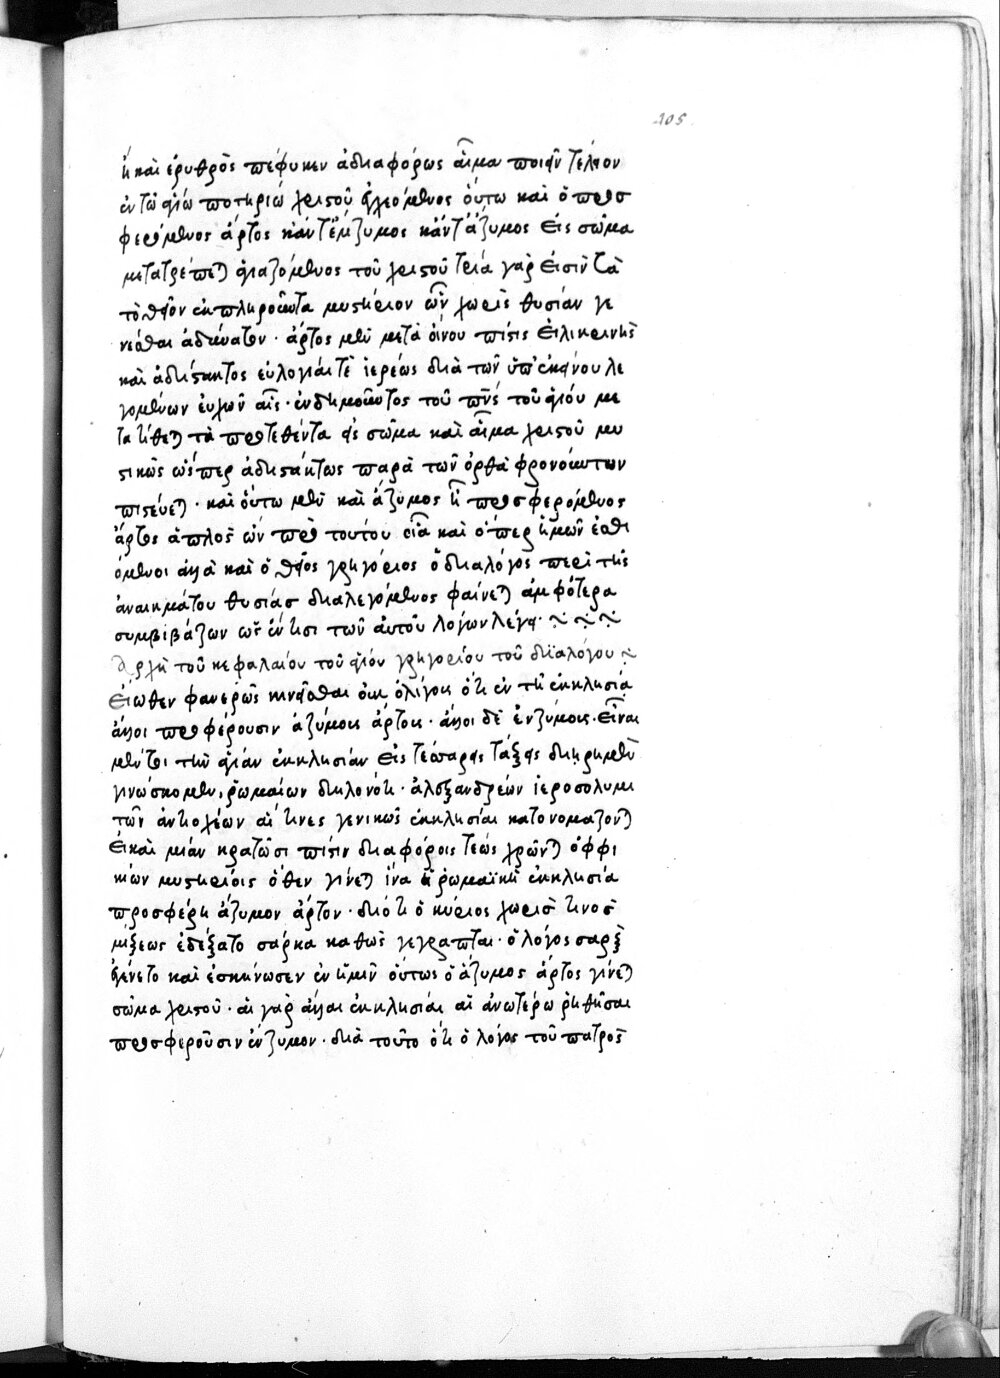 105
ἢ καὶ ἐρυθρὸς πέφυκεν ἀδιαφόρως αἷμα ποιεῖν τέλειον
ἐν τῶ ἁγίω ποτηρίω χριστοῦ εὐχεόμενος οὕτω καὶ ὁ προσ
φερόμενος ἄρτος κἄντ' ἔμζυμος κἄντ' ἄζυμος εἰς σῶμα
μετατρέπεται ἁγιαζόμενος τοῦ χριστοῦ τρία γάρ εἰσιν τὰ
τὸ θεῖον ἐκπληροῦντα μυστήριον ὧν χωρὶς θυσίαν γε
νέσθαι ἀδύνατον · ἄρτος μὲν μετὰ οἴνου πίστις εἰλικρινὴς
καὶ ἀδίστακτος εὐλογία τὲ ἱερέως διὰ τῶν ὑπ' ἐκείνου λε
γομένων εὐχῶν αἷς · ἐνδημοῦντος τοῦ πνς τοῦ ἁγίου με
τατίθεται τὰ προτεθέντα εἰς σῶμα καὶ αἷμα χριστοῦ μυ
στικῶς ὥσπερ ἀδιστάκτως παρὰ τῶν ὀρθὰ φρονούντων
πιστεύεται · καὶ οὕτω μὲν καὶ ἄζυμος ἦ προσφερόμενος
ἄρτος ἁπλὸς ὢν πρὸ τούτου οἷα καὶ ὁ ὑπερ ἡμῶν ἐσθι
όμενοι ἀλλὰ καὶ ὁ θεῖος γρηγόριος ὁ διαλόγος περὶ τῆς
ἀναιμάτου θυσίας διαλεγόμενος φαίνεται ἀμφότερα
συμβιβάζων ὡς ἔν τισι τῶν αὐτοῦ λόγων λέγει ·
Ἀρχὴ τοῦ κεφαλαίου τοῦ ἁγίου γρηγορίου τοῦ διαλόγου
Εἴωθεν φανερῶς κινεῖσθαι οὐκ ὀλίγοις ὅτι ἐν τῇ ἐκκλησία
ἄλλοι προφέρουσιν ἀζύμοις ἄρτοις · ἄλλοι δὲ ἐνζύμοις · Εἶναι
μέντοι τὴν ἁγίαν ἐκκλησίαν εἰς τέσσαρεις τάξεις διῃρημένην
γινώσκομεν, ῥωμαίων δηλονότι · ἀλεξανδρέων ἱεροσολυμι
τῶν ἀντιοχέων αἵ τινες γενικῶς ἐκκλησίαι κατονομάζονται
Εἰ καὶ μίαν κρατῶσι πίστιν διαφόροις τέως χρῶνται ὀφφι
κίων μυστηρίοις ὅθεν γίνεται ἵνα ἡ ῥωμαϊκὴ ἐκκλησία
προσφέρη ἄζυμον ἄρτον · διότι ὁ κύριος χωρὶς τινος
μίξεως ἐδέξατο σάρκα καθὼς γέγραπται · ὁ λόγος σαρξ
ἐγένετο καὶ ἐσκήνωσεν ἐν ἡμῖν οὕτως ὁ ἄζυμος ἄρτος γίνεται
σῶμα χριστοῦ · αἱ γὰρ ἄλλαι ἐκκλησίαι αἱ ἀνωτέρω ῥηθῆσαι
προσφεροῦσιν ἔνζυμον · διὰ τοῦτο ὅτι ὁ λόγος τοῦ πατρὸς